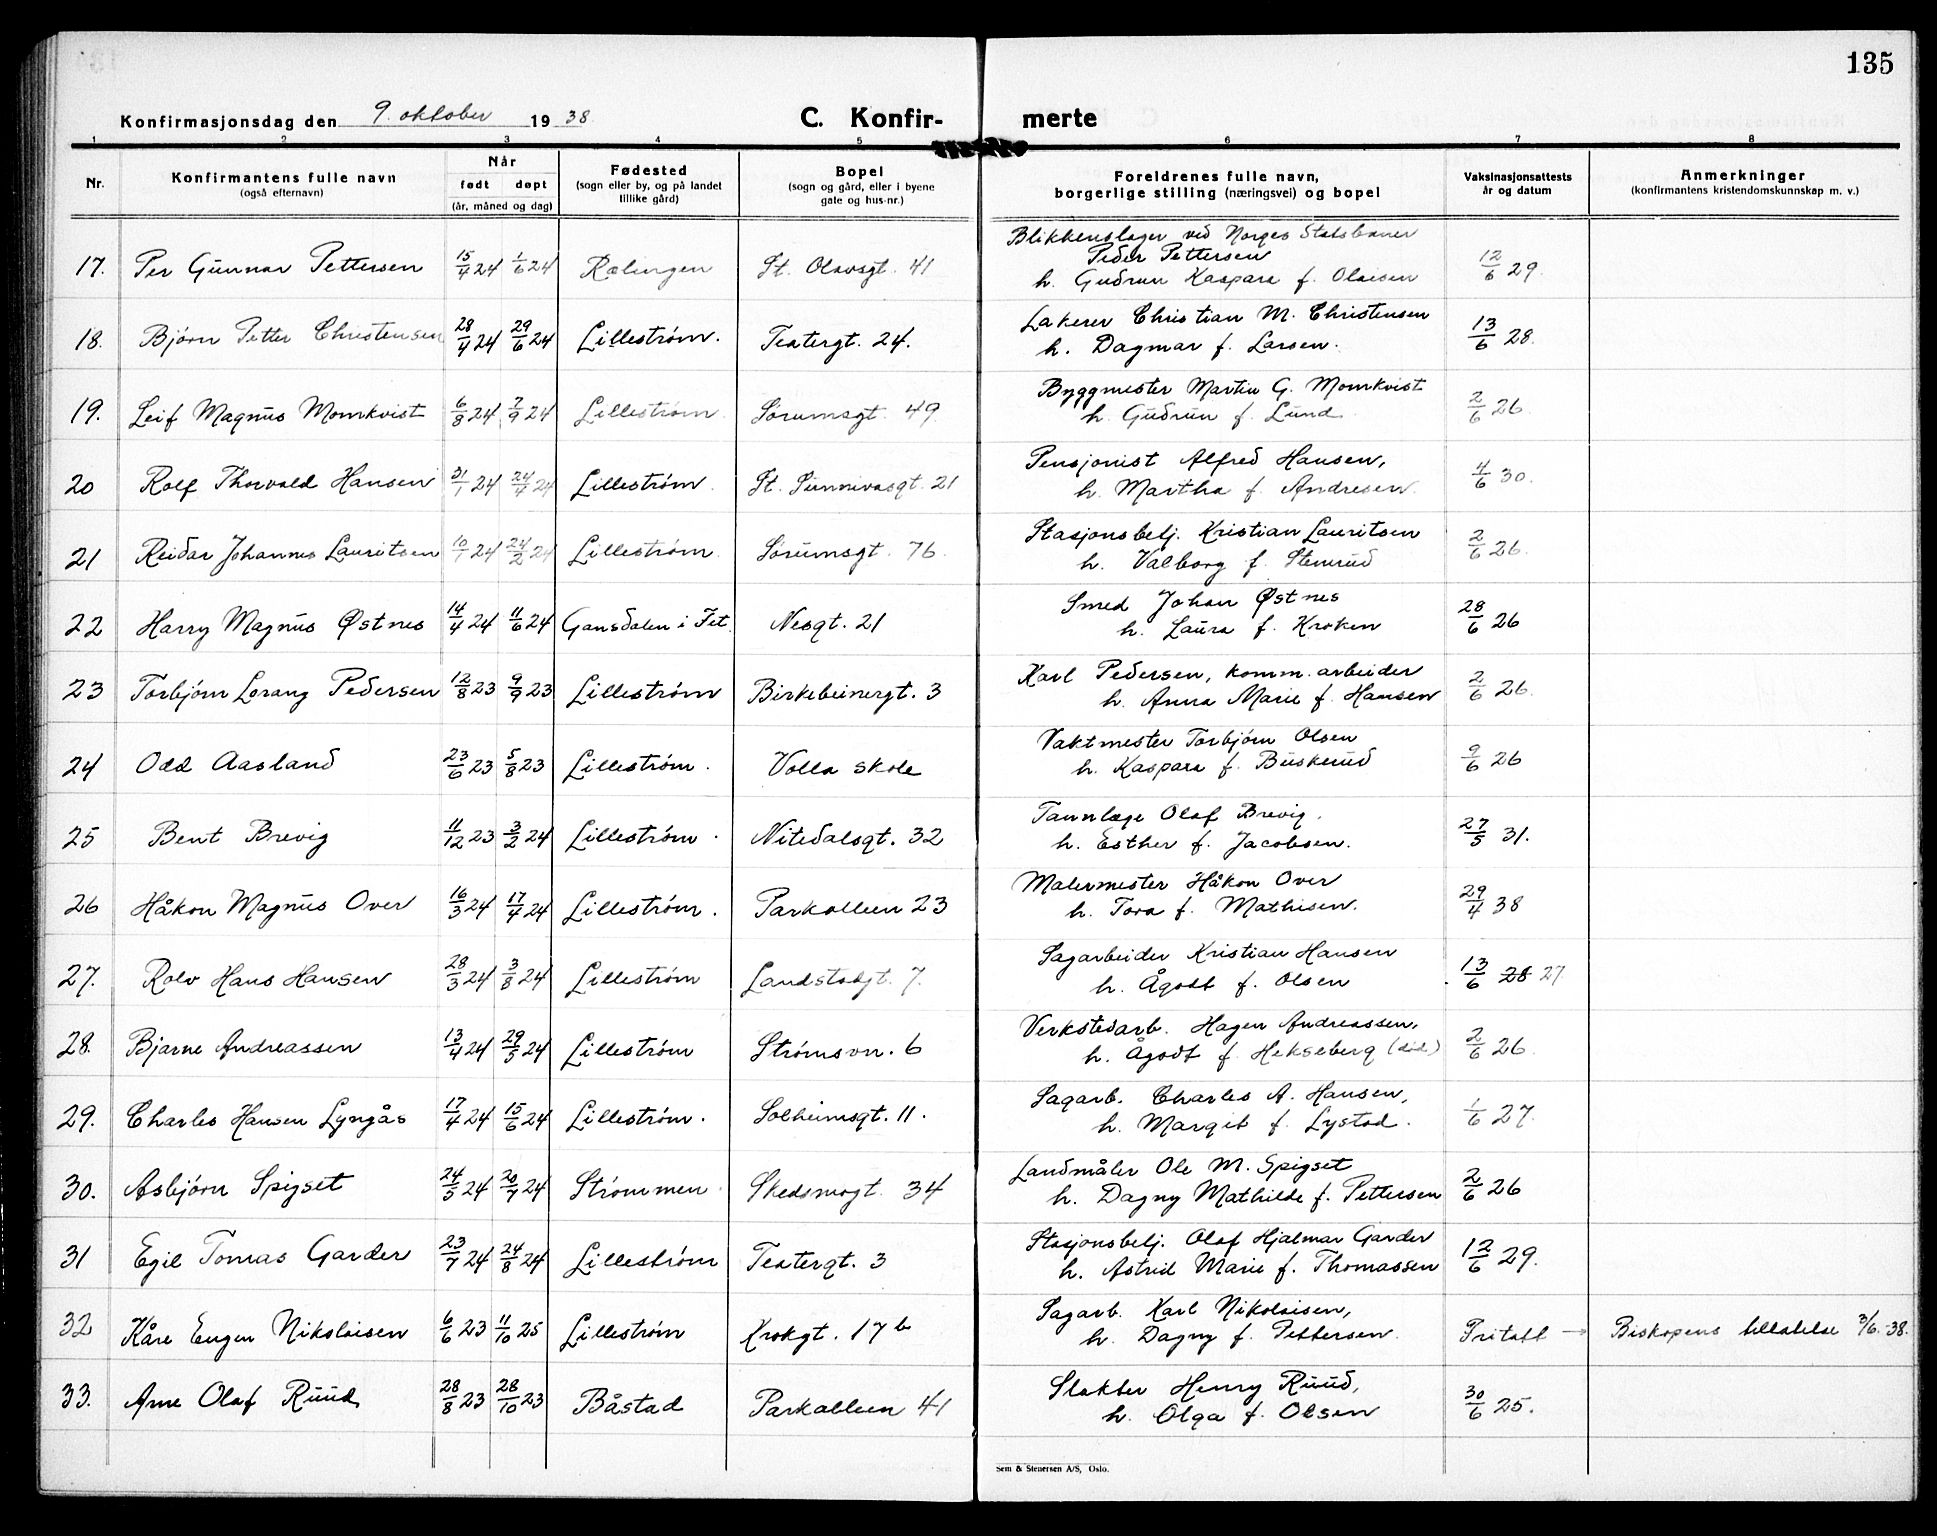 135
Konfirmasjonsdag den 9. oktober 1938
C. Konfir-merte
1 2 3 4 5 6 7 8
Nr. Konfirmantens fulle navn (også efternavn) Når født døpt (år, måned og dag) Fødested (sogn eller by, og på landet tillike gård) Bopel (sogn og gård, eller i byene gate og hus-nr.) Foreldrenes fulle navn, borgerlige stilling (næringsvei) og bopel Vaksinasjonsattests år og datum Anmerkninger (konfirmantens kristendomskunnskap m. v.)
17. Per Gunnar Pettersen 15/4 24 1/6 24 Rælingen St. Olavsgt. 41 Blikkenslager ved Norges Statsbaner
Peder Pettersen
h. Gudrun Kaspara f. Olaisen 12/6 29.
18. Bjørn Petter Christensen 28/4 24 29/6 24 Lillestrøm. Teatergt. 24. Lakerer Christian M. Christensen
h. Dagmar f. Larsen. 13/6 28.
19. Leif Magnus Momkvist 6/8 24 7/9 24 Lillestrøm. Sørumsgt. 49 Byggmester Martin G. Momkvist
h. Gudrun f. Lund 2/6 26.
20 Rolf Thorvald Hansen 31/1 24 24/4 24 Lillestrøm. St. Sunnivasgt. 21 Pensjonist Alfred Hansen,
h. Martha f. Andresen. 4/6 30.
21 Reidar Johannes Lauritsen 10/1 24 24/2 24 Lillestrøm. Sørumsgt. 76. Stasjonsbetj. Kristian Lauritsen
h. Valborg f. Stenrud 2/6 26.
22 Harry Magnus Østnes 14/4 24 11/6 24 Gansdalen i Fet. Nesgt. 21 Smed Johan Østnes
h. Laura f. Kroken 28/6 26
23 Torbjørn Lorang Pedersen 12/8 23 9/9 23 Lillestrøm Birkebeinergt. 3 Karl Pedersen, komm. arbeider
h. Anna Marie f. Hansen 2/6 26.
24 Odd Aasland 23/6 23 5/8 23 Lillestrøm. Volla skole Vaktmester Torbjørn Olsen
h. Kaspara f. Buskerud 9/6 26
25 Bent Brevig 11/12 23 3/2 24 Lillestrøm. Nitedalsgt. 32 Tannlæge Olaf Brevig.
h. Esther f. Jacobsen. 27/5 31.
26 Håkon Magnus Over 16/3 24 17/4 24 Lillestrøm. Parkalleen 23 Malermester Håkon Over
h. Tora f. Mathisen. 29/4 38
27. Rolv Hans Hansen 28/3 24 3/8 24 Lillestrøm Landstadgt. 7. Sagarbeider Kristian Hansen
h. Ågodt f. Olsen 13/6 28 27
28. Bjarne Andreassen 13/4 24 29/5 24 Lillestrøm Strømsvn. 6 Verkstedarb. Hagen Andreassen,
h. Ågodt f. Hekseberg (død) 2/6 26.
29. Charles Hansen Lyngås 17/4 24 15/6 24 Lillestrøm. Solheimsgt. 11. Sagarb. Charles A. Hansen,
h. Margit f. Lystad. 1/6 27.
30. Asbjørn Spigset 24/5 24 20/7 24 Strømmen. Skedsmogt. 34 Landmåler Ole M. Spigset
h. Dagny Mathilde f. Pettersen 2/6 26
31 Egil Tomas Garder 23/7 24 24/8 24 Lillestrøm Teatergt. 3 Stasjonsbetj. Olaf Hjalmar Garder
h. Astrid Marie f. Thomassen 12/6 29.
32 Kåre Eugen Nikolaisen 6/6 23 11/10 25 Lillestrøm Krokgt. 17 b Sagarb. Karl Nikolaisen,
h. Dagny f. Pettersen. Fritatt → Biskopens tillatelse 3/6.-38.
33. Arne Olaf Ruud 28/8 23 28/10 23 Båstad Parkalleen 41 Slakter Henry Ruud,
h. Olga f. Olsen 30/6 25.
Sem & Stenersen A/S, Oslo.